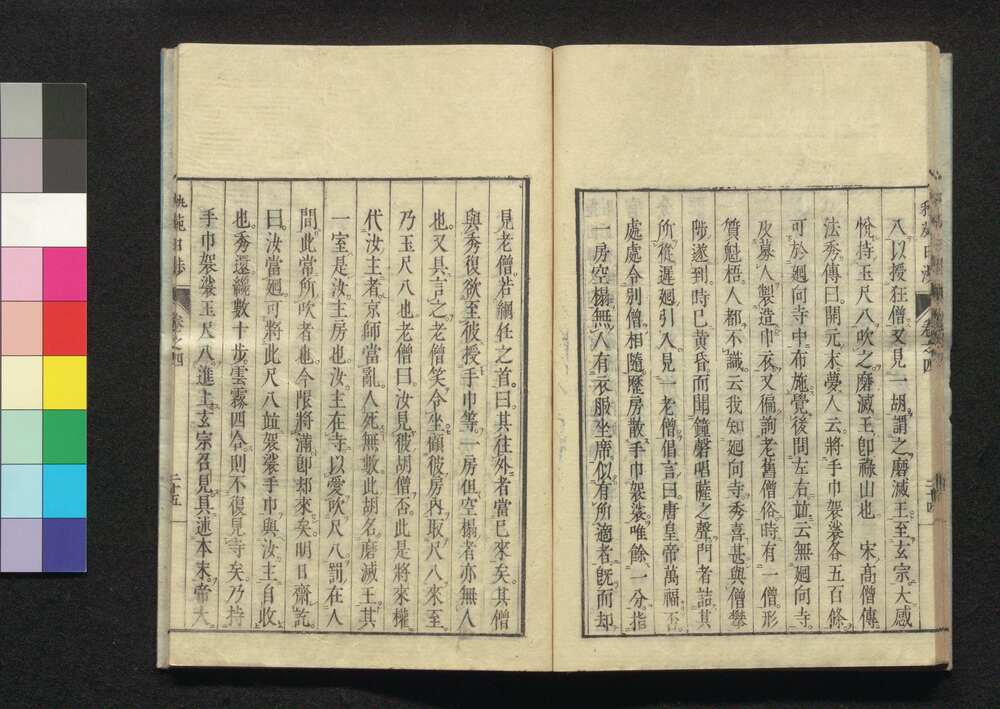 八以授狂僧又見一胡謂之磨滅王至玄宗大感
悅持玉尺八吹之磨滅王卽祿山也　宋高僧傳
法秀傳曰開元末夢人云將手巾袈裟各五百條
可於廻向寺中布施覺後問左右竝云無廻向寺
及募人製造巾衣又徧詢老舊僧俗時有一僧形
質魁梧人都不識云我知廻向寺秀喜甚與僧攀
陟遂到時已黃昏而聞鐘磬唱薩之聲門者詰其
所從遲廻引入見一老僧倡言曰唐皇帝萬福否
處處令別僧相隨歷房散手巾袈裟唯餘一分指
一房空榻無人有衣服坐席似有所適者旣而却
卷之四
二十四
見老僧若綱任之首曰其往外者當已來矣其僧
與秀復欲至彼授手巾等一房但空榻者亦無人
也又具言之老僧笑令坐顧彼房內取尺八來至
乃玉尺八也老僧曰汝見彼胡僧否此是將來權
代汝主者京師當亂人死無數此胡名磨滅王其
一室是汝主房也汝主在寺以愛吹尺八罰在人
間此常所吹者也今限將滿卽却來矣明日齋訖
曰汝當廻可將此尺八竝袈裟手巾與汝主自收
也秀還纔數十步雲霧四合則不復見寺矣乃持
手巾袈裟玉尺八進上玄宗召見具述本末帝大
卷之四
二十五